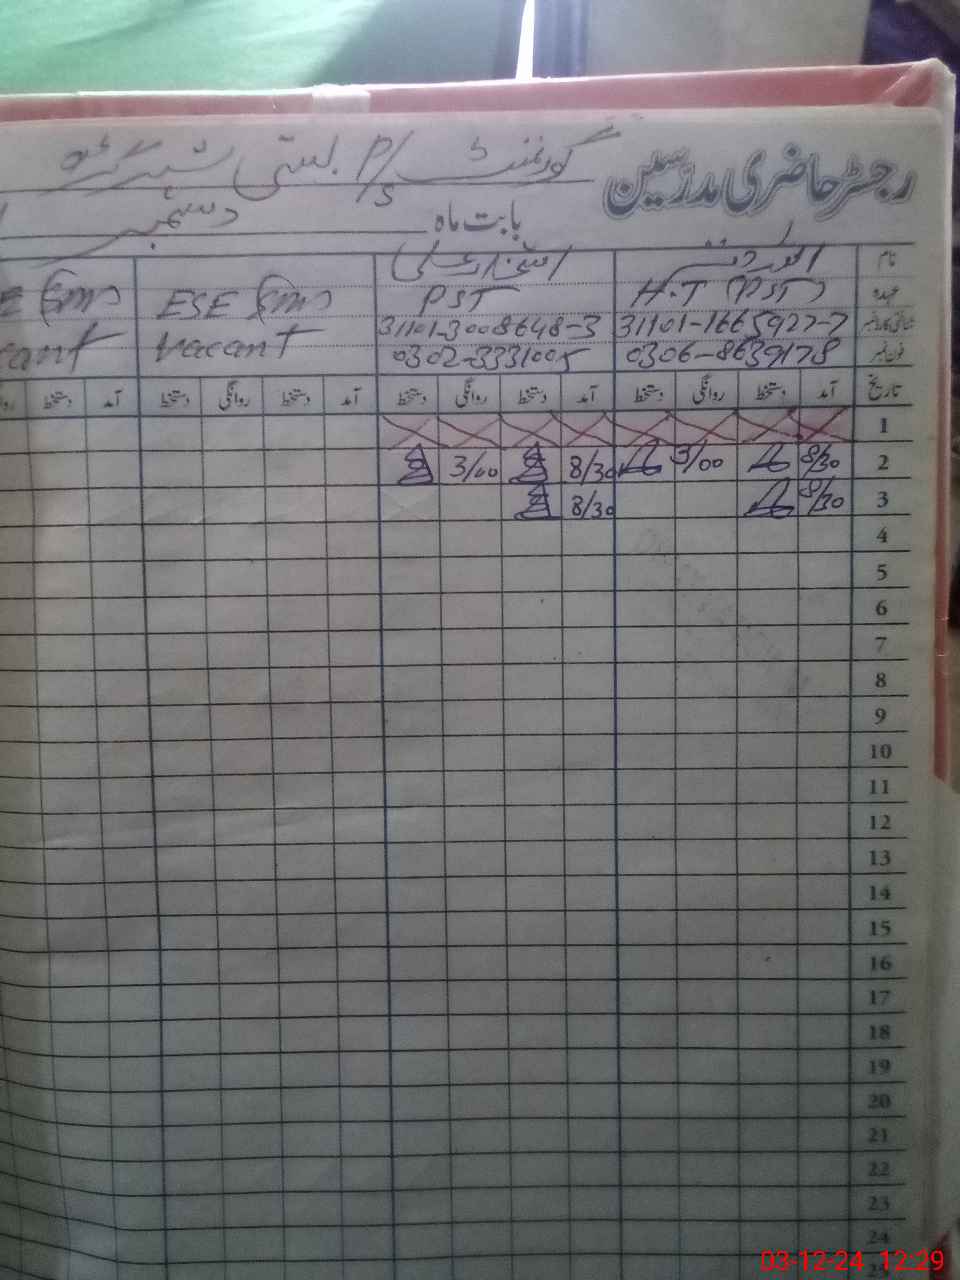 رجسٹر حاضری مدرسین گورنمنٹ P/S بستی
بابت ماہ دسمبر
نام
عہدہ H.T (PST) PST ESE
شناختی کارڈ نمبر 31101-1665927-7 31101-3008648-3 vacant
فون نمبر 0306-8639178 0302-3331005
تاریخ آمد دستخط روانگی دستخط آمد دستخط روانگی دستخط آمد دستخط روانگی دستخط آمد دستخط
1
2 8/30 3/00 8/30 3/00
3 8/30 8/30
4
5
6
7
8
9
10
11
12
13
14
15
16
17
18
19
20
21
22
23
24
25
03-12-24 12:29